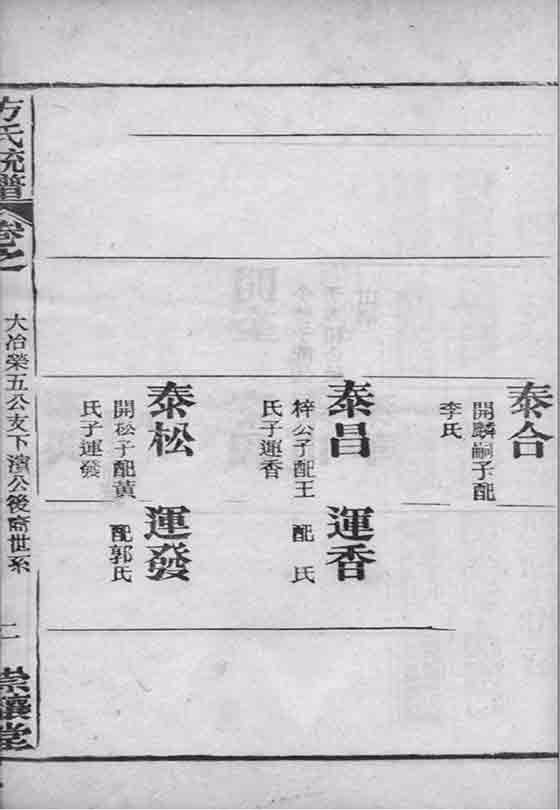 泰合
開麟嗣子配
李氏
泰昌
梓公子配王
氏子運香
運香
配 氏
泰松
開松子配黃
氏子運發
運發
配郭氏
方氏統譜
卷之
大冶榮五公支下濱公後裔世系
二
崇讓堂